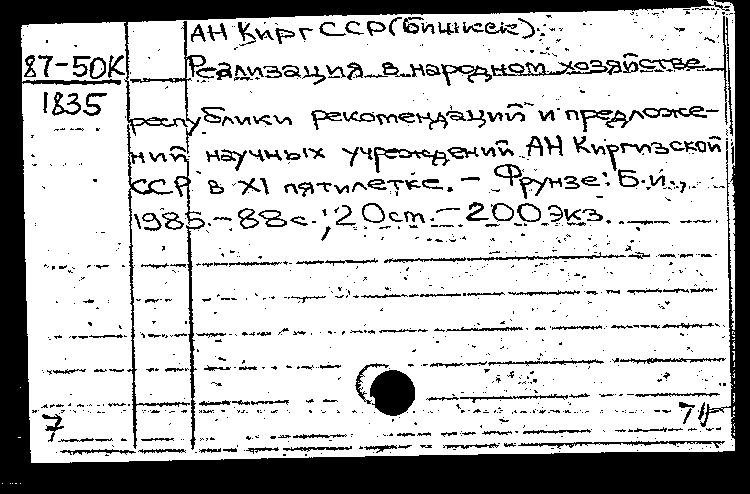 АН Кирг ССР (Бишкек).
87-50К
Реализация в народном хозяйстве
1835
республики рекомендаций и предложе-
ний научных учреждений АН Киргизской
ССР в XI пятилетке. - Фрунзе: Б.и.,
1985. - 88 с.; 20 см. - 200 экз.
7